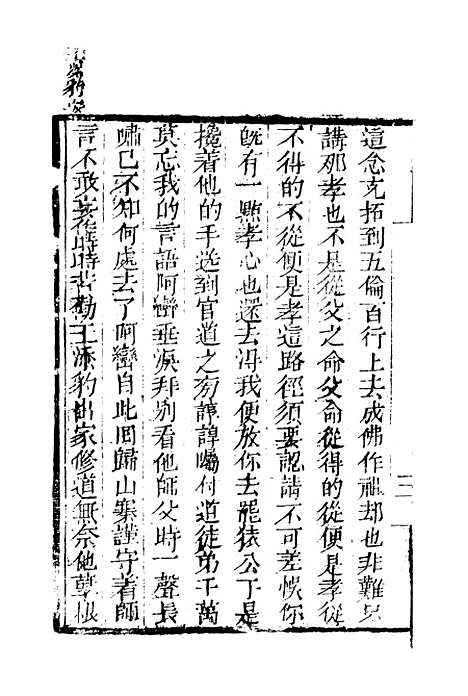 這念充拓到五倫百行上去成佛作祖却也非難只
講那孝也不是從父之命父命從得的從便是孝從
不得的不從便是孝這路徑須要認請不可差悞你
旣有一點孝心也還去得我便放你去罷猿公于是
攙着他的手送到官道之旁諄諄囑付道徒弟千萬
莫忘我的言語阿巒垂淚拜別看他師父時一聲長
嘯已不知何處去了阿巒自此回歸山寨謹守着師
言不敢時時苦勸王添豹出家修道無奈他草根